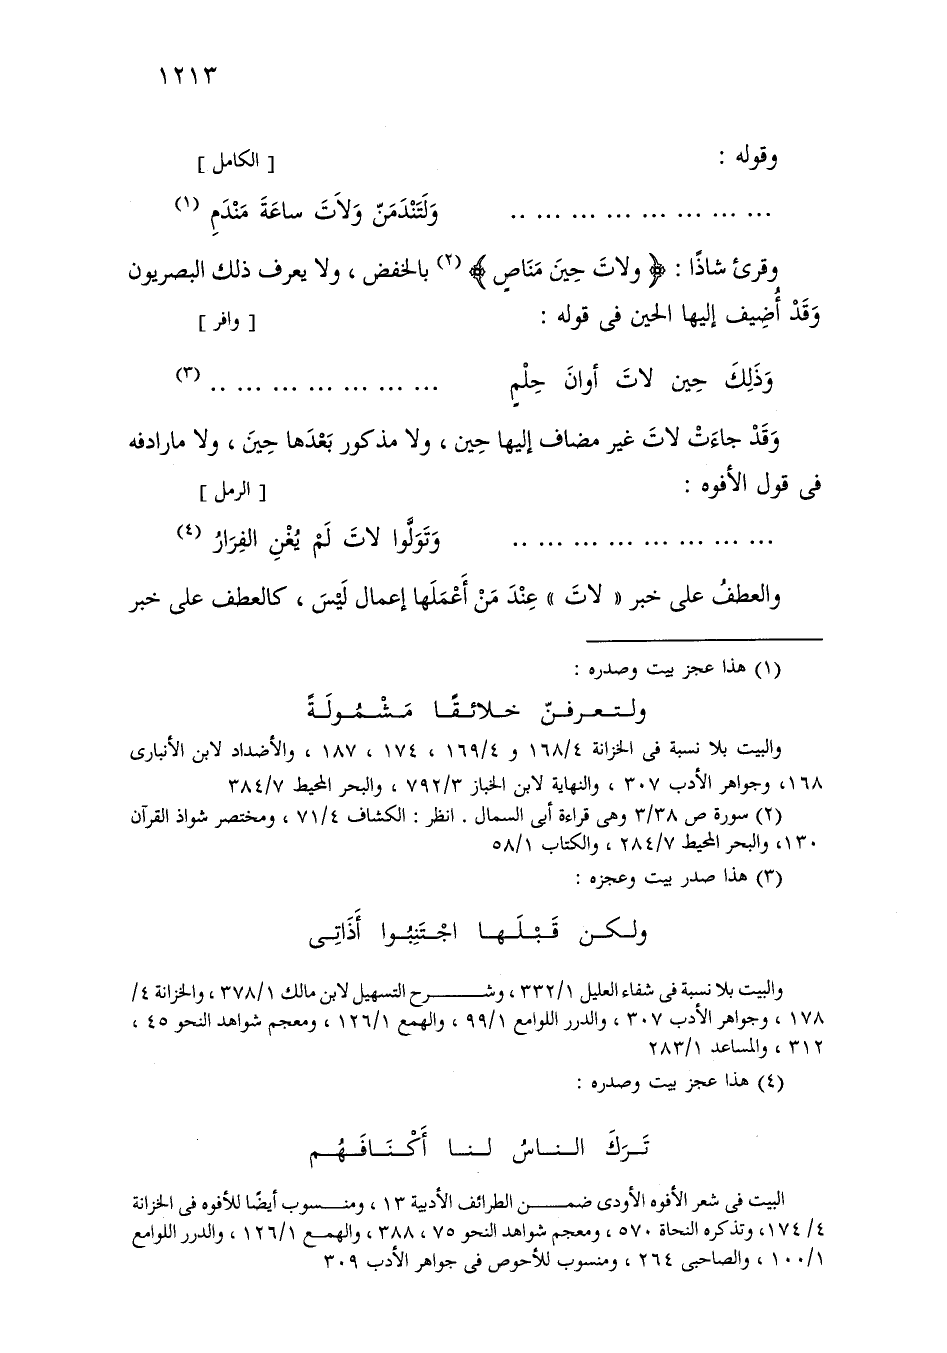 ١٢١٣
وقوله : [ الكامل ]
... ... ... ... ... ... ... .. وَلَتَنْدَمَنّ وَلاَتَ ساعَةَ مَنْدَمِ (١)
وقرئ شاذًا : ﴿ ولاتَ حِينَ مَنَاصٍ ﴾ (٢) بالخفض ، ولا يعرف ذلك البصريون
وَقَدْ أُضِيف إليها الحين فى قوله : [ وافر ]
وَذَلِكَ حِين لاتَ أوانَ حِلْمٍ ... ... ... ... ... ... ... .. (٣)
وَقَدْ جاءَتْ لاتَ غير مضاف إليها حِين ، ولا مذكور بَعْدَها حِينَ ، ولا مارادفه
فى قول الأفوه : [ الرمل ]
... ... ... ... ... ... ... .. وَتَوَلَّوا لاتَ لَمْ يُغْنِ الفِرَارُ (٤)
والعطفُ على خبر « لاتَ » عِنْدَ مَنْ أَعْمَلَها إعمال لَيْسَ ، كالعطف على خبر
(١) هذا عجز بيت وصدره :
ولـتـعـرفـنّ خـلائـقًـا مَـشْـمُـولَـةً
والبيت بلا نسبة فى الخزانة ١٦٨/٤ و ١٦٩/٤ ، ١٧٤ ، ١٨٧ ، والأضداد لابن الأنبارى
١٦٨، وجواهر الأدب ٣٠٧ ، والنهاية لابن الخباز ٧٩٢/٣ ، والبحر المحيط ٣٨٤/٧
(٢) سورة ص ٣/٣٨ وهى قراءة أبى السمال . انظر : الكشاف ٧١/٤ ، ومختصر شواذ القرآن
١٣٠، والبحر المحيط ٢٨٤/٧ ، والكتاب ٥٨/١
(٣) هذا صدر بيت وعجزه :
ولـكـن قَـبْـلَـهـا اجْـتَـنِبُـوا أَذَاتِـى
والبيت بلا نسبة فى شفاء العليل ٣٣٢/١ ، وشـــرح التسهيل لابن مالك ٣٧٨/١ ، والخزانة ٤/
١٧٨ ، وجواهر الأدب ٣٠٧ ، والدرر اللوامع ٩٩/١ ، والهمع ١٢٦/١ ، ومعجم شواهد النحو ٤٥ ،
٣١٢ ، والمساعد ٢٨٣/١
(٤) هذا عجز بيت وصدره :
تَـرَكَ الـنـاسُ لـنـا أَكْـنَـافَـهُـم
البيت فى شعر الأفوه الأودى ضمـــن الطرائف الأدبية ١٣ ، ومنـــسوب أيضًا للأفوه فى الخزانة
٤/ ١٧٤، وتذكره النحاة ٥٧٠ ، ومعجم شواهد النحو ٧٥ ، ٣٨٨ ، والهمـع ١٢٦/١ ، والدرر اللوامع
١٠٠/١ ، والصاحبى ٢٦٤ ، ومنسوب للأحوص فى جواهر الأدب ٣٠٩